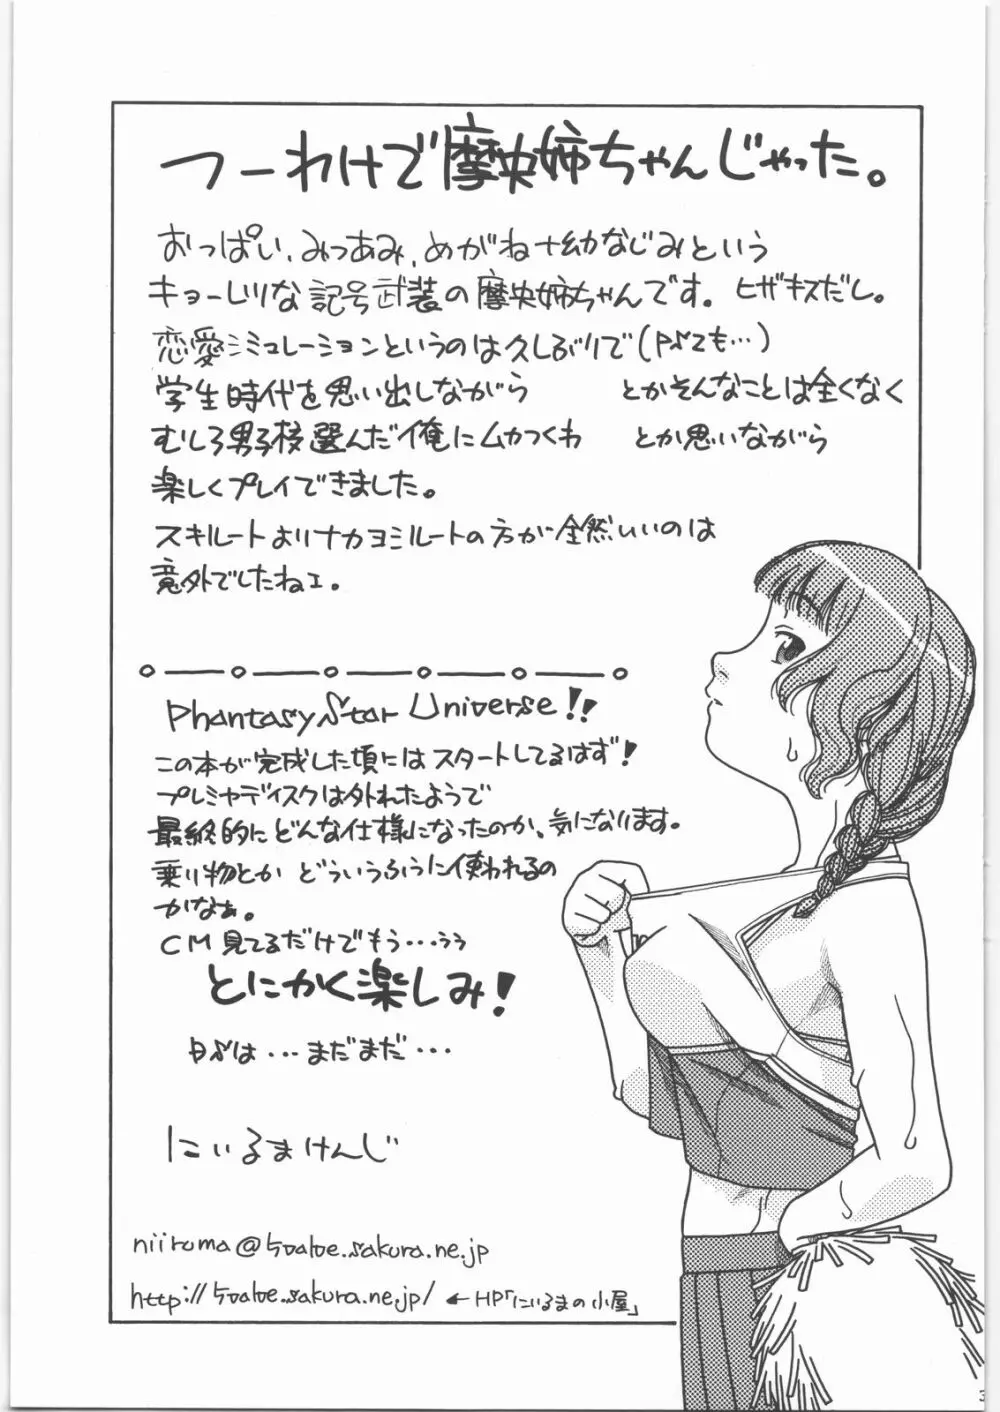 つーわけで摩央姉ちゃんじゃった。
おっぱい、みつあみ、めがね+幼なじみという
キョーレツな記号武装の摩央姉ちゃんです。ヒザキスだし。
恋愛シミュレーションというのは久しぶりで(PS2でも…)
学生時代を思い出しながら とかそんなことは全くなく
むしろ男子校選んだ俺にムカつくわ とか思いながら
楽しくプレイできました。
スキルートよりナカヨシルートの方が全然いいのは
意外でしたねェ。
Phantasy Star Universe!!
この本が完成した頃にはスタートしてるはず!
プレミヤディスクは外れたようで
最終的にどんな仕様になったのか、気になります。
乗り物とか どういうふうに使われるの
かなぁ。
CM見てるだけでもう…うぅ
とにかく楽しみ!
は…まだまだ…
にいるまけんじ
niiruma@
.sakura.ne.jp
http://
.sakura.ne.jp/ ←HP「にいるまの小屋」